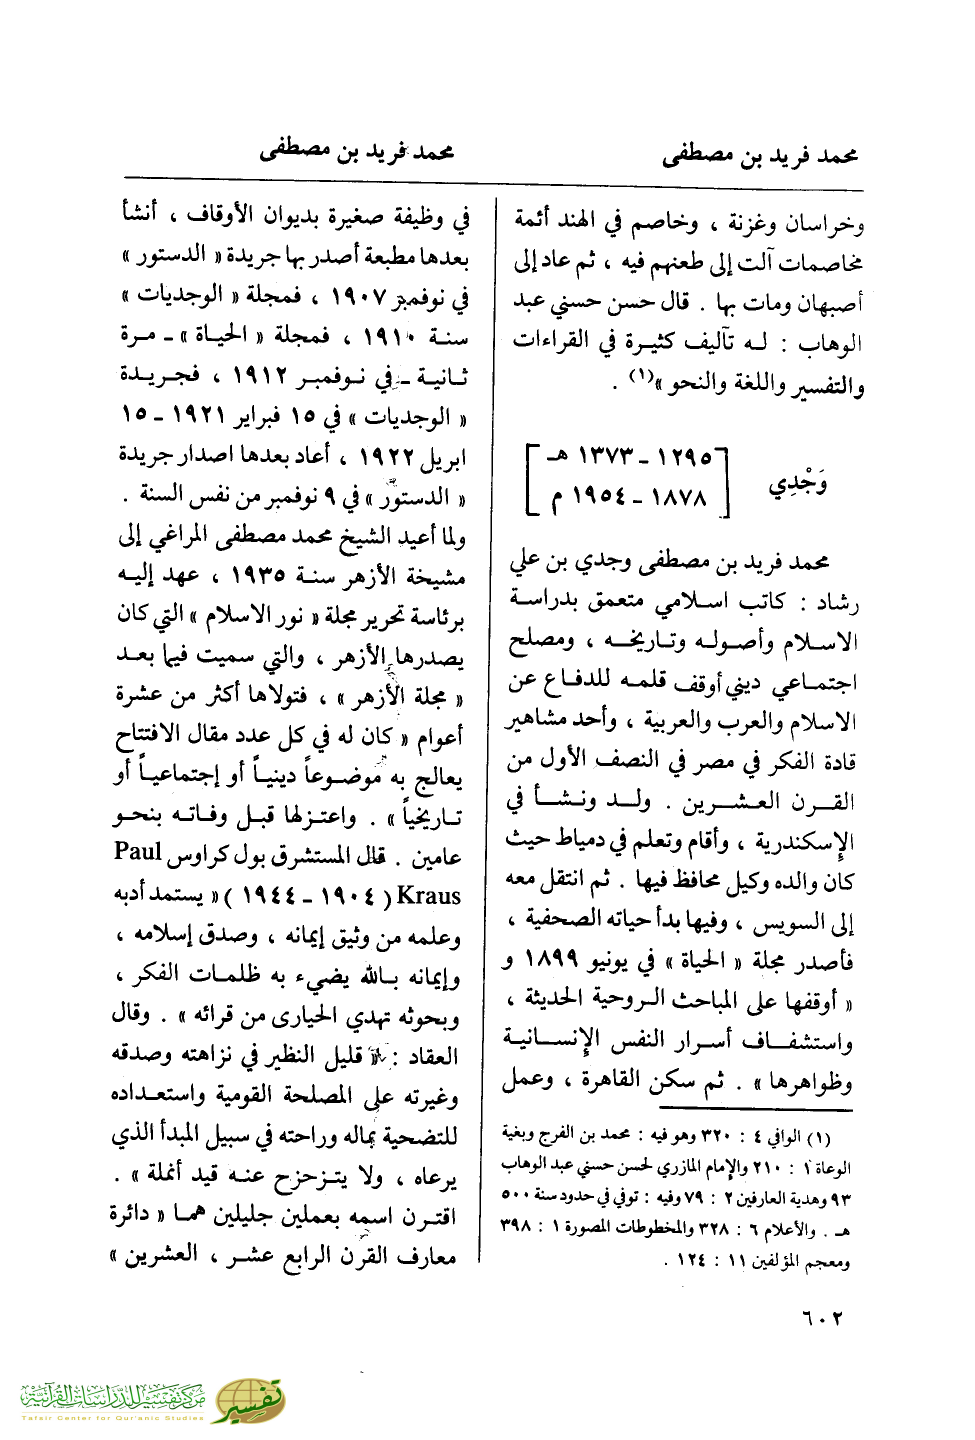 محمد فريد بن مصطفى
محمد فريد بن مصطفى
وخراسان وغزنة ، وخاصم في الهند أئمة
مخاصمات آلت إلى طعنهم فيه ، ثم عاد إلى
أصبهان ومات بها . قال حسن حسني عبد
الوهاب : له تآليف كثيرة في القراءات
والتفسير واللغة والنحو »(١) .
وَجْدِي
[١٢٩٥ - ١٣٧٣ هـ
١٨٧٨ - ١٩٥٤ م]
محمد فريد بن مصطفى وجدي بن علي
رشاد : كاتب اسلامي متعمق بدراسة
الاسلام وأصوله وتاريخه ، ومصلح
اجتماعي ديني أوقف قلمه للدفاع عن
الاسلام والعرب والعربية ، وأحد مشاهير
قادة الفكر في مصر في النصف الأول من
القرن العشرين . ولد ونشأ في
الإسكندرية ، وأقام وتعلم في دمياط حيث
كان والده وكيل محافظ فيها . ثم انتقل معه
إلى السويس ، وفيها بدأ حياته الصحفية ،
فأصدر مجلة « الحياة » في يونيو ١٨٩٩ و
« أوقفها على المباحث الروحية الحديثة ،
واستشفاف أسرار النفس الإنسانية
وظواهرها » . ثم سكن القاهرة ، وعمل
(١) الوافي ٤ : ٣٢٠ وهو فيه : محمد بن الفرج وبغية
الوعاة ١ : ٢١٠ والإمام المازري لحسن حسني عبد الوهاب
٩٣ وهدية العارفين ٢ : ٧٩ وفيه : توفي في حدود سنة ٥٠٠
هـ . والأعلام ٦ : ٣٢٨ والمخطوطات المصورة ١ : ٣٩٨
ومعجم المؤلفين ١١ : ١٢٤ .
في وظيفة صغيرة بديوان الأوقاف ، أنشأ
بعدها مطبعة أصدر بها جريدة « الدستور »
في نوفمبر ١٩٠٧ ، فمجلة « الوجديات »
سنة ١٩١٠ ، فمجلة « الحياة » - مرة
ثانية - في نوفمبر ١٩١٢ ، فجريدة
« الوجديات » في ١٥ فبراير ١٩٢١ - ١٥
ابريل ١٩٢٢ ، أعاد بعدها اصدار جريدة
« الدستور » في ٩ نوفمبر من نفس السنة .
ولما أعيد الشيخ محمد مصطفى المراغي إلى
مشيخة الأزهر سنة ١٩٣٥ ، عهد إليه
برئاسة تحرير مجلة « نور الاسلام » التي كان
يصدرها الأزهر ، والتي سميت فيما بعد
« مجلة الأزهر » ، فتولاها أكثر من عشرة
أعوام « كان له في كل عدد مقال الافتتاح
يعالج به موضوعاً دينياً أو إجتماعياً أو
تاريخياً » . واعتزلها قبل وفاته بنحو
عامين . قال المستشرق بول كراوس Paul
Kraus ( ١٩٠٤ - ١٩٤٤ ) « يستمد أدبه
وعلمه من وثيق إيمانه ، وصدق إسلامه ،
وإيمانه بالله يضيء به ظلمات الفكر ،
وبحوثه تهدي الحيارى من قرائه » . وقال
العقاد : « قليل النظير في نزاهته وصدقه
وغيرته على المصلحة القومية واستعداده
للتضحية بماله وراحته في سبيل المبدأ الذي
يرعاه ، ولا يتزحزح عنه قيد أنملة » .
اقترن اسمه بعملين جليلين هما « دائرة
معارف القرن الرابع عشر ، العشرين »
٦٠٢
مركز تفسير للدراسات القرآنية
Tafsir Center for Qur'anic Studies
تفسير